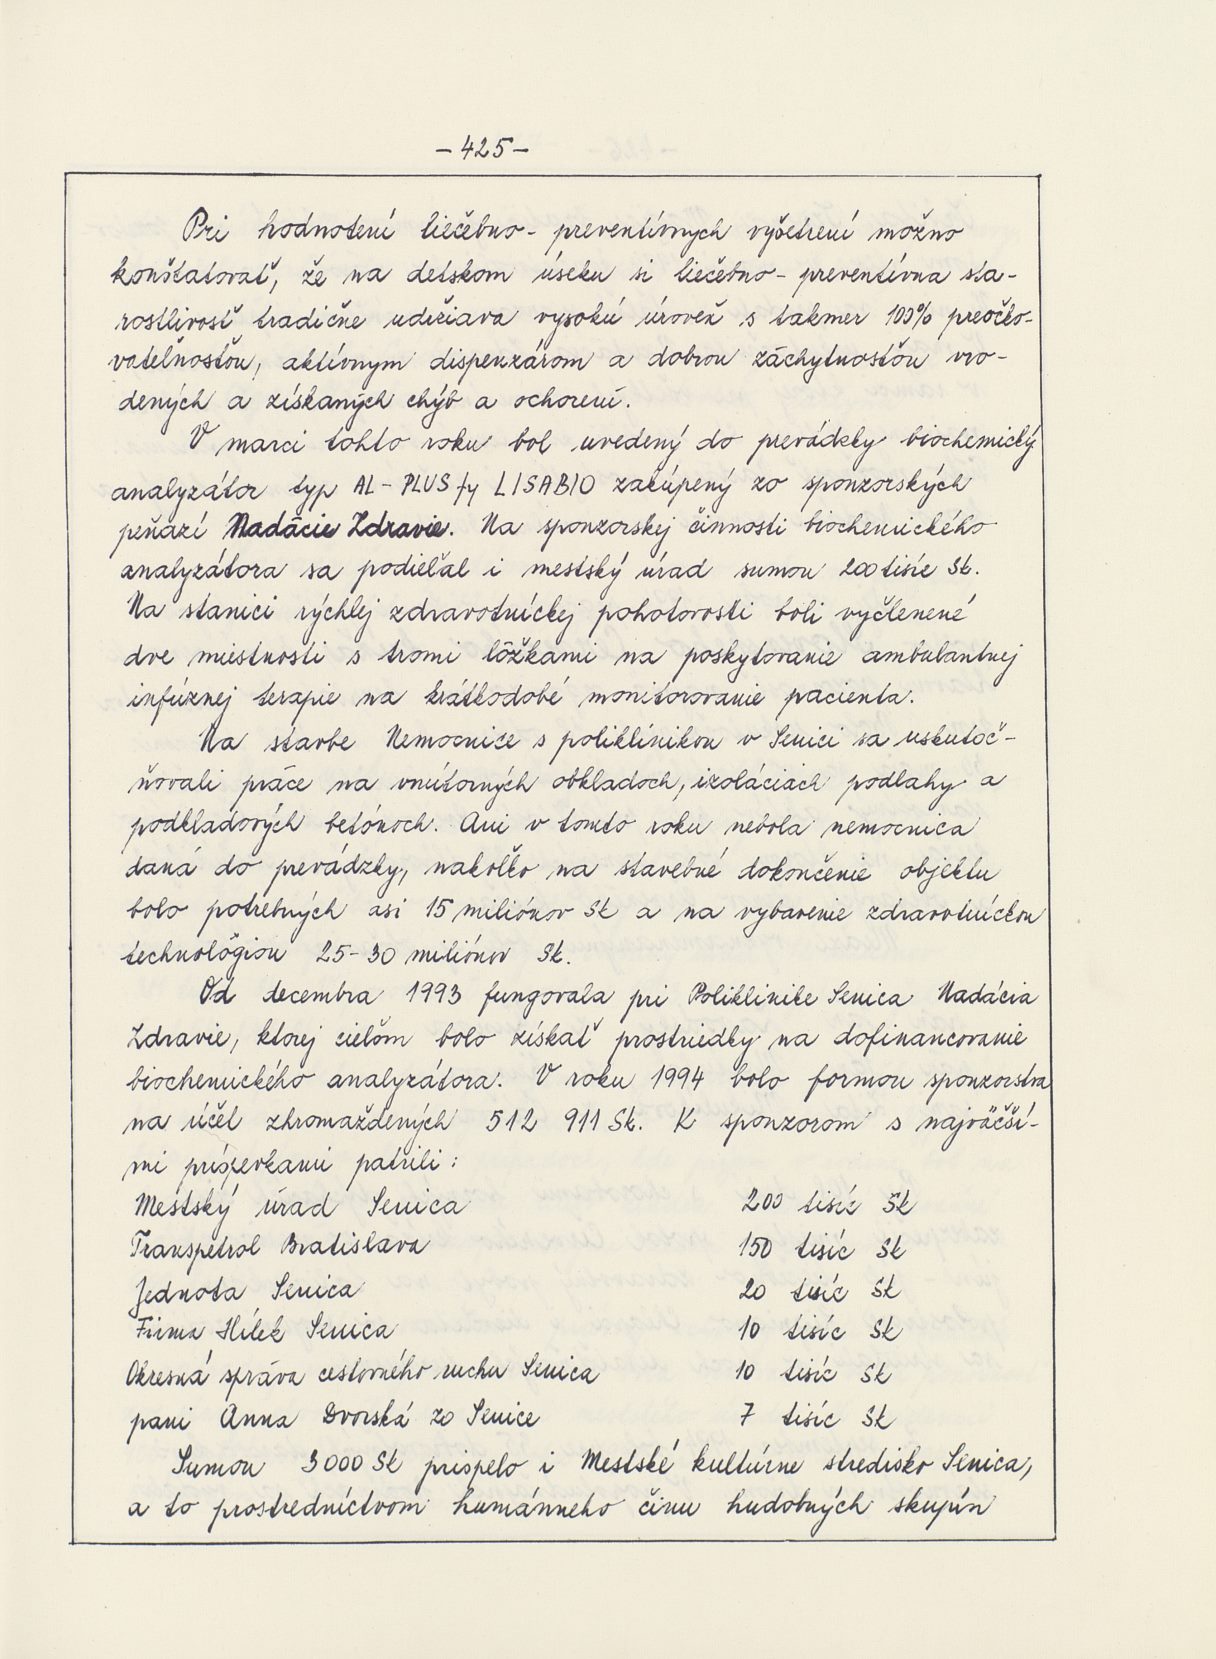 - 425 -
Pri hodnotení liečebno- preventívnych vyšetrení možno
konštatovať, že na detskom úseku si liečebno- preventívna sta-
rostlivosť tradične udržiava vysokú úroveň s takmer 100% preočko-
vateľnosťou, aktívnym dispenzárom a dobrou záchytnosťou vro-
dených a získaných chýb a ochorení.
V marci tohto roku bol uvedený do prevádzky biochemický
analyzátor typ AL- PLUS fy LISABIO zakúpený zo sponzorských
peňazí Nadácie Zdravie. Na sponzorskej činnosti biochemického
analyzátora sa podieľal i mestský úrad sumou 200 tisíc Sk.
Na stanici rýchlej zdravotníckej pohotovosti boli vyčlenené
dve miestnosti s tromi lôžkami na poskytovanie ambulantnej
infúznej terapie na krátkodobé monitorovanie pacienta.
Na stavbe Nemocnice s poliklinikou v Senici sa uskutoč-
ňovali práce na vnútorných obkladoch, izoláciách podlahy a
podkladových betónoch. Ani v tomto roku nebola nemocnica
daná do prevádzky, nakoľko na stavebné dokončenie objektu
bolo potrebných asi 15 miliónov Sk a na vybavenie zdravotníckou
technológiou 25-30 miliónov Sk.
Od decembra 1993 fungovala pri Poliklinike Senica Nadácia
Zdravie, ktorej cieľom bolo získať prostriedky na dofinancovanie
biochemického analyzátora. V roku 1994 bolo formou sponzorstva
na účel zhromaždených 512 911 Sk. K sponzorom s najväčší-
mi príspevkami patrili:
Mestský úrad Senica 200 tisíc Sk
Transpetrol Bratislava 150 tisíc Sk
Jednota Senica 20 tisíc Sk
Firma Hílek Senica 10 tisíc Sk
Okresná správa cestovného ruchu Senica 10 tisíc Sk
pani Anna Dvorská zo Senice 7 tisíc Sk
Sumou 3000 Sk prispelo i Mestské kultúrne stredisko Senica,
a to prostredníctvom humánneho činu hudobných skupín